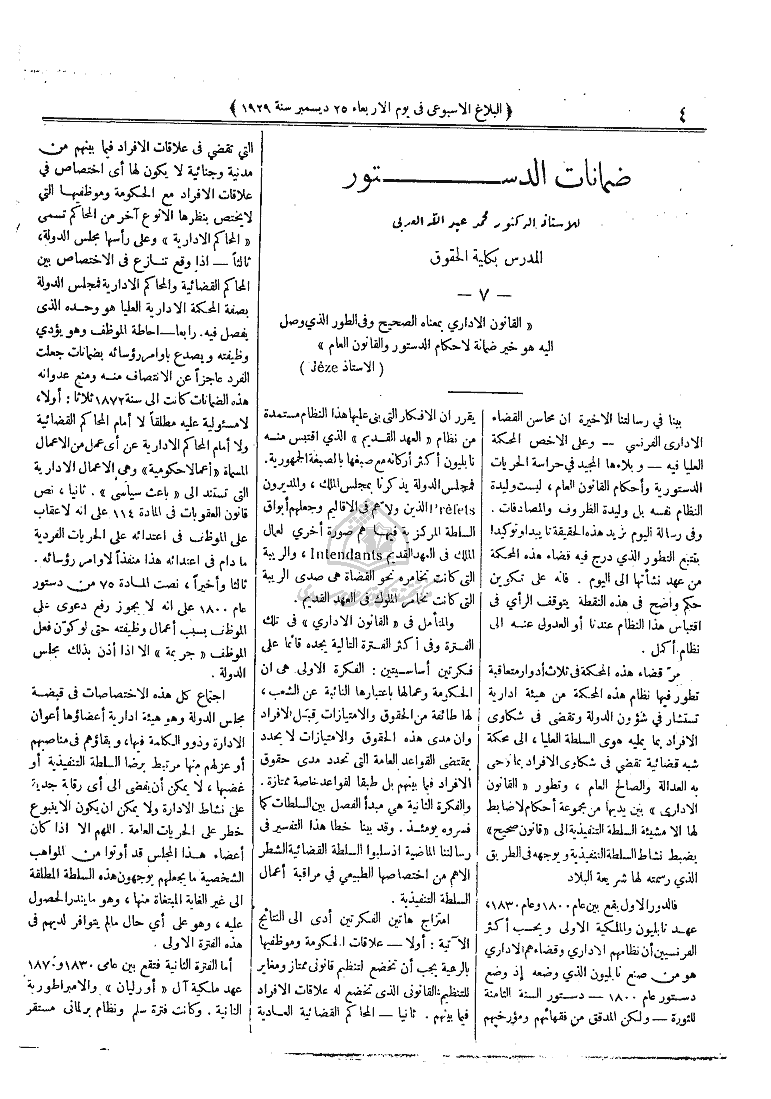 ٤
﴿ البلاغ الاسبوعى فى يوم الاربعاء ٢٥ ديسمبر سنة ١٩٢٩ ﴾
ضمانات الدستور
للاستاذ الدكتور محمد عبد الله العربى
المدرس بكلية الحقوق
— ٧ —
« القانون الاداري بمعناه الصحيح وفى الطور الذي وصل
اليه هو خير ضمانة لاحكام الدستور والقانون العام »
( الاستاذ Jèze )
بينا في رسالتنا الاخيرة ان محاسن القضاء
الادارى الفرنسي — وعلى الاخص المحكة
العليا فيه — وبلاءها المجيد في حراسة الحريات
الدستورية وأحكام القانون العام ، ليست وليدة
النظام نفسه بل وليدة الظروف والمصادفات .
وفى رسالة اليوم نزيد هذه الحقيقة تأييداً وتوكيدا
بتتبع التطور الذي درج فيه قضاء هذه المحكة
من عهد نشأتها الى اليوم . فانه على تكوين
حكم واضح في هذه النقطة يتوقف الرأي فى
اقتباس هذا النظام عندنا أو العدول عنه الى
نظام أكمل .
مر قضاء هذه المحكة فى ثلاث أدوار متعاقبة
تطور فيها نظام هذه المحكة من هيئة ادارية
تستشار في شؤون الدولة وتقضى فى شكاوى
الافراد بما يمليه هوى السلطة العليا ، الى محكة
شبه قضائية تقضى في شكاوى الافراد بما توحى
به العدالة والصالح العام ، وتطور « القانون
الادارى » بين يديها من مجموعة أحكام لاضابط
لها الا مشيئة السلطة التنفيذية الى « قانون صحيح »
يضبط نشاط السلطة التنفيذية ويوجهه فى الطريق
الذي رسمته لها شريعة البلاد
فالدور الاول يقع بين عام ١٨٠٠ وعام ١٨٣٠ ،
عهد نابليون والملكية الاولى ويحب أكثر
الفرنسيين أن نظامهم الاداري وقضاءهم الاداري
هو من صنع نابليون الذي وضعه إذ وضع
دستور عام ١٨٠٠ — دستور السنة الثامنة
للثورة — ولكن المدقق من فقهائهم ومؤرخيهم
يقرر ان الافكار التى بنى عليها هذا النظام مستمدة
من نظام « العهد القديم » الذي اقتبس منه
نابليون أكثر أركانه مع صبغها بالصبغة الجمهورية .
فمجلس الدولة يذكرنا بمجلس الملك ، والمديرون
Préfets الذين ولاهم فى الاقاليم وجعلهم أبواق
السلطة المركزية فيها هم صورة أخري لعمال
الملك فى العهد القديم Intendants ، والريبة
التى كانت تخامره نحو القضاة هى صدى الريبة
التى كانت تخامر الملوك فى العهد القديم .
والمتأمل في « القانون الاداري » فى تلك
الفترة وفى أكثر الفترة التالية يجده قائما على
فكرتين أساسيتين : الفكرة الاولى هى ان
الحكومة وعمالها باعتبارها النائبة عن الشعب ،
لها طائفة من الحقوق والامتيازات قبل الافراد
وان مدى هذه الحقوق والامتيازات لا يحدد
بمقتضى القواعد العامة التى تحدد مدى حقوق
الافراد فيما بينهم بل طبقا لقواعد خاصة ممتازة .
والفكرة الثانية هي مبدأ الفصل بين السلطات كما
فسروه يومئذ . وقد بينا خطأ هذا التفسير فى
رسالتنا الماضية اذ سلبوا السلطة القضائية الشطر
الاهم من اختصاصها الطبيعي في مراقبة أعمال
السلطة التنفيذية .
امتزاج هاتين الفكرتين أدى الى النتائج
الآتية : أولا — علاقات الحكومة وموظفيها
بالرعية يجب أن تخضع لتنظيم قانونى ممتاز ومغاير
للتنظيم القانونى الذى تخضع له علاقات الافراد
فيما بينهم . ثانيا — المحاكم القضائية العادية
التي تقضي فى علاقات الافراد فيما بينهم من
مدنية وجنائية لا يكون لها أى اختصاص في
علاقات الافراد مع الحكومة وموظفيها التي
لايختص بنظرها الا نوع آخر من المحاكم تسمى
« المحاكم الادارية » وعلى رأسها مجلس الدولة ،
ثالثاً — اذا وقع تنازع فى الاختصاص بين
المحاكم القضائية والمحاكم الادارية فمجلس الدولة
بصفة المحكة الادارية العليا هو وحده الذى
يفصل فيه . رابعا — احاطة الموظف وهو يؤدي
وظيفته و يصدع باوامر رؤسائه بضمانات جعلت
الفرد عاجزاً عن الانتصاف منه ومنع عدوانه
هذه الضمانات كانت الى سنة ١٨٧٢ ثلاثا : أولا ،
لامسئولية عليه مطلقاً لا أمام المحاكم القضائية
ولا أمام المحاكم الادارية عن أى عمل من الاعمال
المسماة « أعمالا حكومية » وهى الاعمال الادارية
التى تستند الى « باعث سياسى » . ثانيا ، نص
قانون العقوبات فى المادة ١١٤ على انه لاعقاب
على الموظف فى اعتدائه على الحريات الفردية
ما دام فى اعتدائه هذا منفذاً لاوامر رؤسائه .
ثالثا وأخيراً ، نصت المادة ٧٥ من دستور
عام ١٨٠٠ على انه لا يجوز رفع دعوى على
الموظف بسبب أعمال وظيفته حتى لو كوّن فعل
الموظف « جريمة » الا اذا أذن بذلك مجلس
الدولة .
اجتماع كل هذه الاختصاصات فى قبضة
مجلس الدولة وهو هيئة ادارية أعضاؤها أعوان
الادارة وذوو الكلمة فيها ، وبقاؤهم فى مناصبهم
أو عزلهم منها مرتبط برضا السلطة التنفيذية أو
غضبها ، لا يمكن أن يفضى الى أى رقابة جدية
على نشاط الادارة ولا يمكن ان يكون الا ينبوع
خطر على الحريات العامة . اللهم الا اذا كان
أعضاء هذا المجلس قد أوتوا من المواهب
الشخصية ما يجعلهم يوجهون هذه السلطة المطلقة
الى غير الغاية المبتغاة منها ، وهو ما يندر الحصول
عليه ، وهو على أي حال مالم يتوافر لديهم فى
هذه الفترة الاولى .
أما الفترة الثانية فتقع بين عامى ١٨٣٠ و ١٨٧٠
عهد ملكية آل « أورليان » والامبراطورية
الثانية . وكانت فترة سلم ونظام برلمانى مستقر